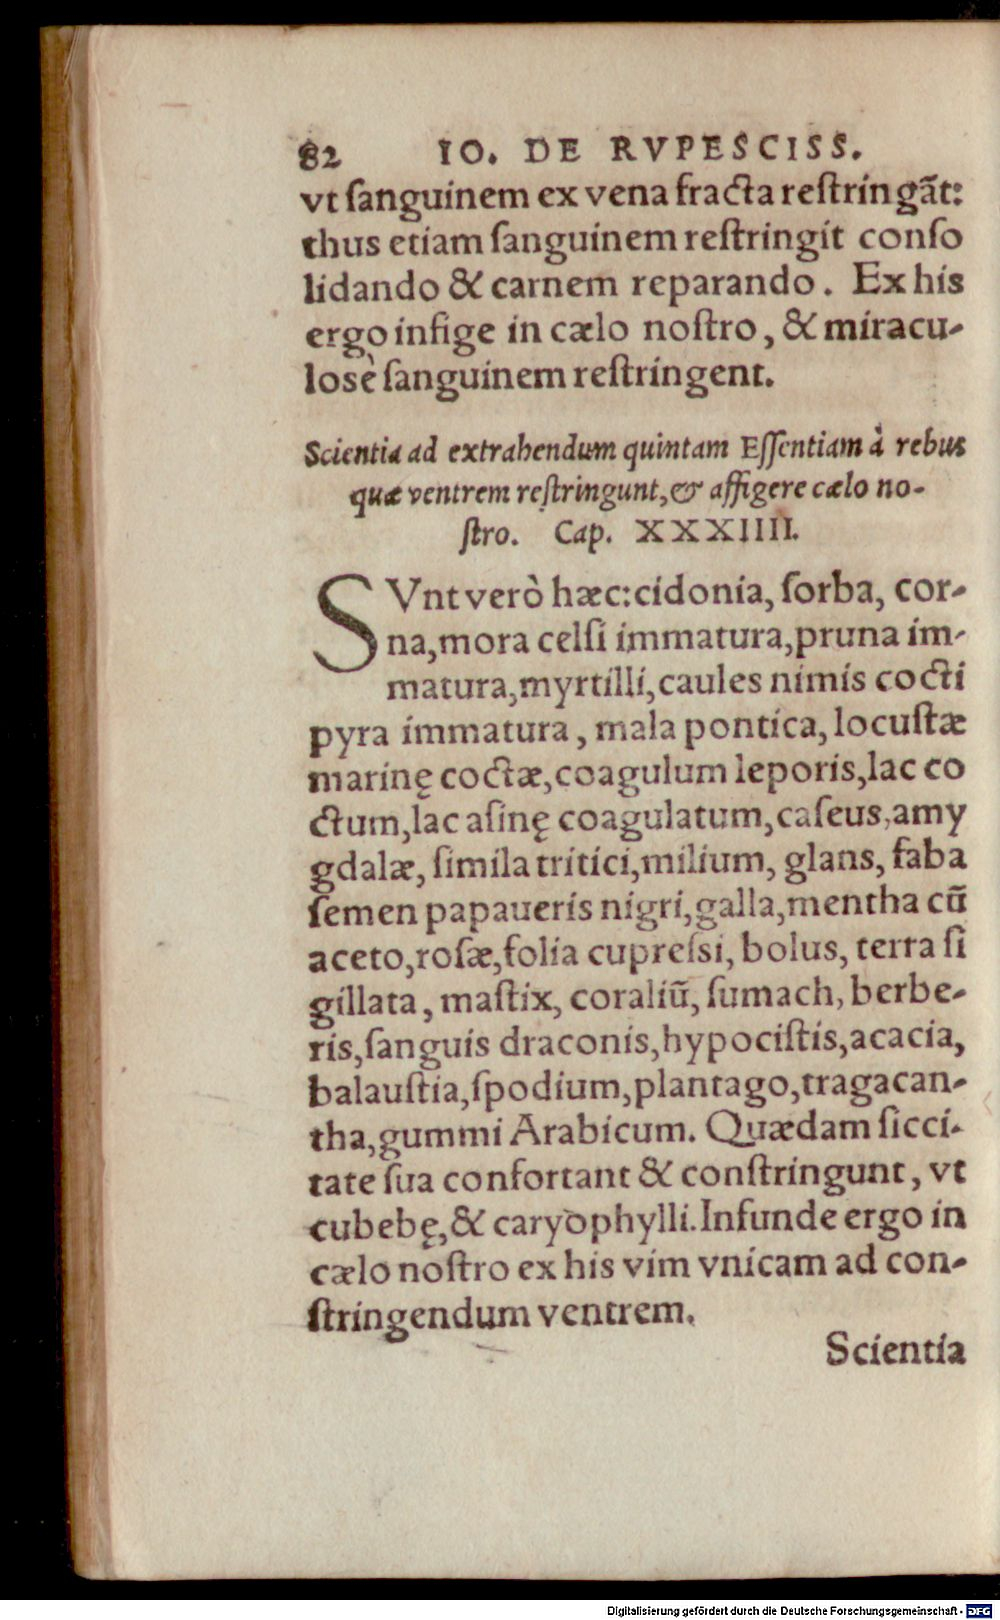 82 IO. DE RVPESCISS.
vt ſanguinem ex vena fracta reſtringãt:
thus etiam ſanguinem reſtringit conſo
lidando & carnem reparando. Ex his
ergo infige in cælo noſtro, & miracu-
losè ſanguinem reſtringent.
Scientia ad extrahendum quintam Eſſentiam à rebus
quæ ventrem reſtringunt, & affigere cælo no-
ſtro. Cap. XXXIIII.
SVnt verò hæc: cidonia, ſorba, cor-
na, mora celſi immatura, pruna im-
matura, myrtilli, caules nimis cocti
pyra immatura, mala pontica, locuſtæ
marinę coctæ, coagulum leporis, lac co
ctum, lac aſinę coagulatum, caſeus, amy
gdalæ, ſimila tritici, milium, glans, faba
ſemen papaueris nigri, galla, mentha cũ
aceto, roſæ, folia cupreſsi, bolus, terra ſi
gillata, maſtix, coraliũ, ſumach, berbe-
ris, ſanguis draconis, hypociſtis, acacia,
balauſtia, ſpodium, plantago, tragacan-
tha, gummi Arabicum. Quædam ſicci-
tate ſua confortant & conſtringunt, vt
cubebę, & caryophylli. Infunde ergo in
cælo noſtro ex his vim vnicam ad con-
ſtringendum ventrem.
Scientia
Digitalisierung gefördert durch die Deutsche Forschungsgemeinschaft - DFG